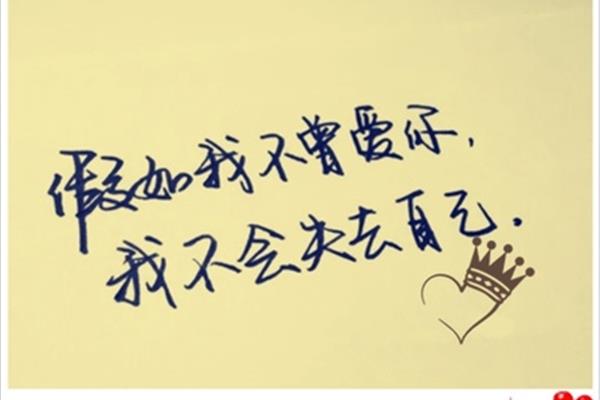 假如我不曾爱你,
我不会失去自己.